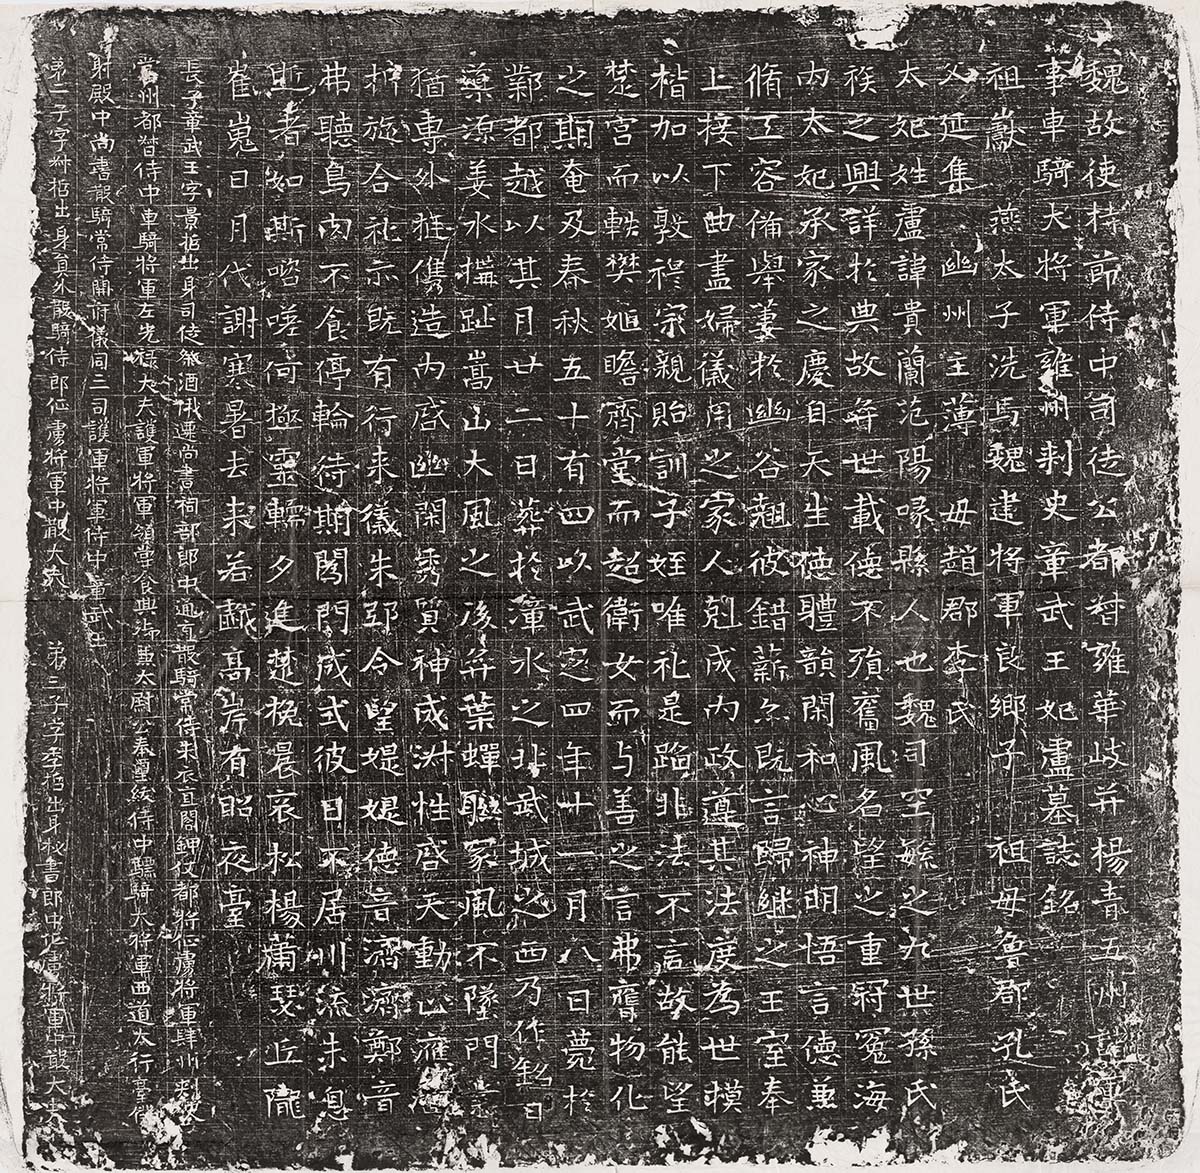 魏故使持節侍中司徒公都督雍華岐并楊青五州諸軍
事車騎大將軍雍州刾史章武王妃盧墓誌銘
祖巘　燕太子洗馬魏建將軍良鄉子　祖母魯郡孔氏
父延集　幽州主薄　母趙郡李氏
太妃姓盧諱貴蘭范陽涿縣人也魏司空毓之九世孫氏
族之興詳於典故弈世載德不殞舊風名望之重冠冕海
內太妃承家之慶自天生德體韻閑和心神明悟言德兼
脩工容備舉萋於幽谷翹彼錯薪亦既言歸継之王室奉
上接下曲盡婦儀用之家人剋成內政遵其法度為世模
楷加以敦穆宗親貽訓子姪唯礼是蹈非法不言故能望
楚宮而軼樊姬瞻齊堂而超衛女而与善之言弗膺物化
之期奄及春秋五十有四以武定四年十一月八日薨於
鄴都越以其月廿二日葬於漳水之北武城之西乃作銘曰
藥源姜水搆趾嵩山大風之後弈葉蟬聯家風不墜門素
猶專外挺儁造內啓幽閑秀質神成淋性啓天動止應
折旋合礼示既有行来儀朱邸令望媞媞德音濟濟鄭音
弗聽鳥肉不食停輪待期闔門成式彼日不居川流未息
逝者如斯嗞嗟何極靈轜夕進楚挽晨哀松楊蕭瑟丘隴
崔嵬日月代謝寒暑去来若觑高岸有昭夜臺
長子章武王字景哲出身司徒祭酒俄遷尚書祠部郎中通直散騎常侍朱衣直閤鉀仗都將征虜將軍肆州刾史
當州都督侍中車騎將軍左光祿大夫護軍將軍領嘗食典御兼太尉公奉璽紱侍中驃騎大將軍西道大行臺僕
射殿中尚書散騎常侍開府儀同三司護軍將軍侍中章武王
弟二子字叔哲出身員外散騎侍郎征虜將軍中散大夫　弟三子字季哲出身校書郎中征虜將軍中散大夫